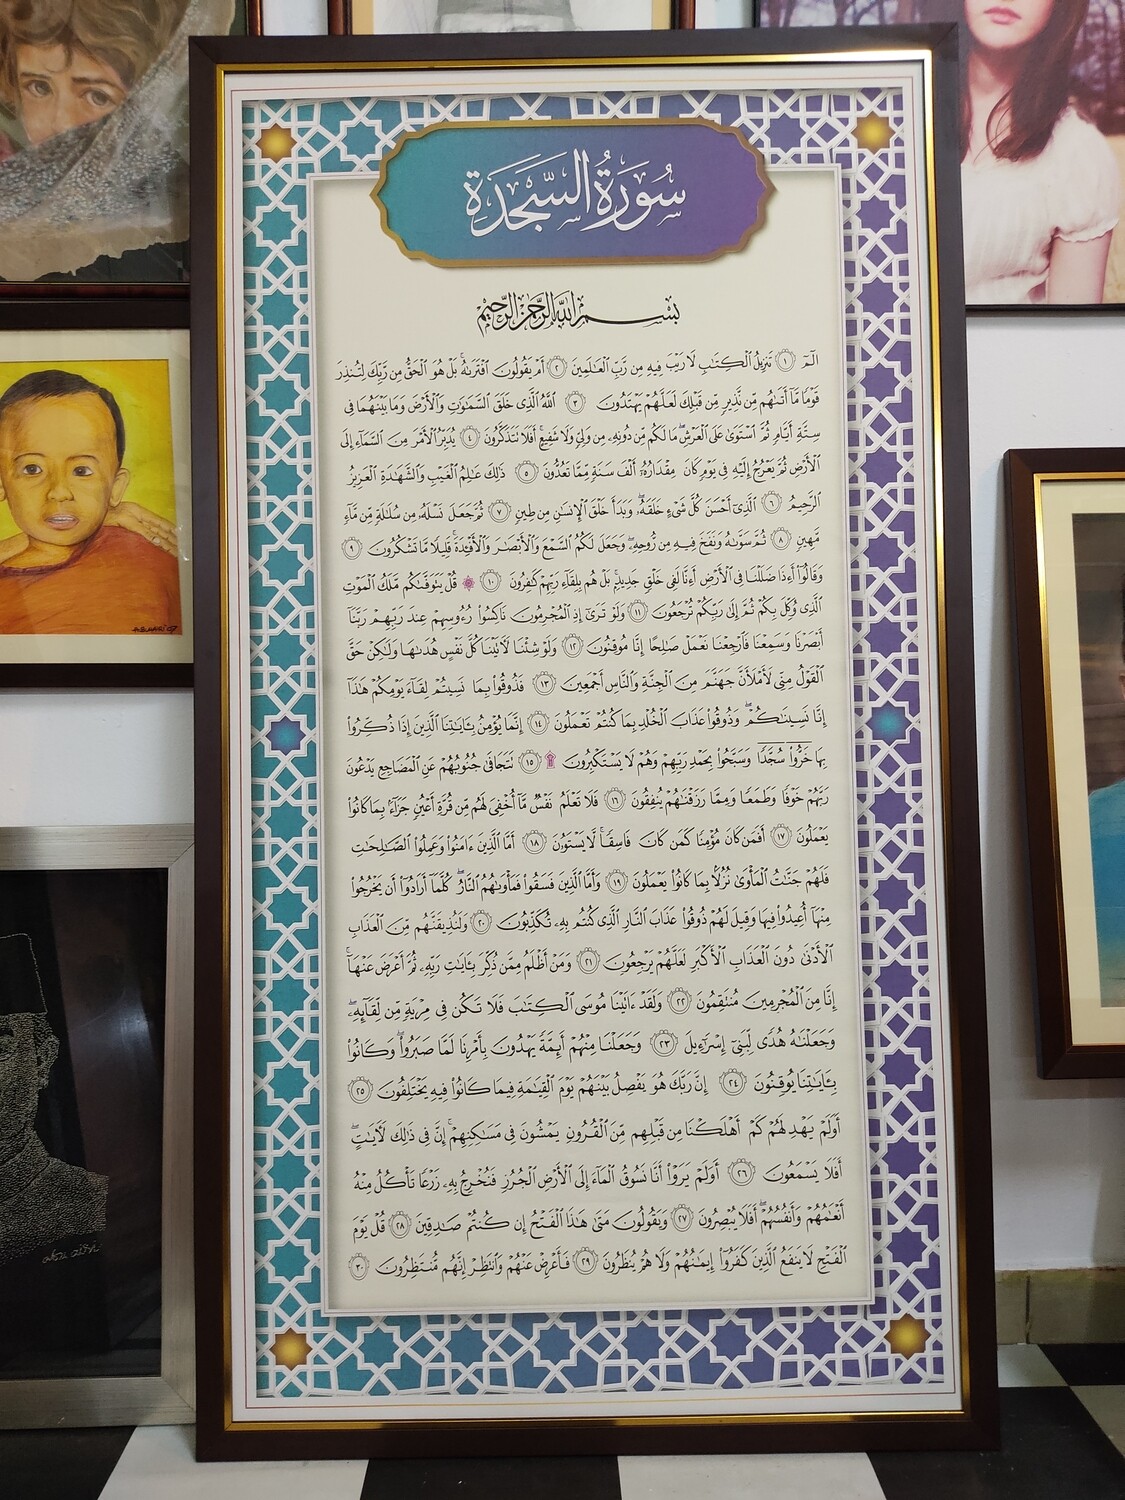 سُورَةُ السَّجْدَةِ
بِسْمِ اللَّهِ الرَّحْمَٰنِ الرَّحِيمِ
الٓمٓ ١ تَنزِيلُ الْكِتَٰبِ لَا رَيْبَ فِيهِ مِن رَّبِّ الْعَٰلَمِينَ ٢ أَمْ يَقُولُونَ افْتَرَىٰهُ ۚ بَلْ هُوَ الْحَقُّ مِن رَّبِّكَ لِتُنذِرَ
قَوْمًا مَّآ أَتَىٰهُم مِّن نَّذِيرٍ مِّن قَبْلِكَ لَعَلَّهُمْ يَهْتَدُونَ ٣ اللَّهُ الَّذِى خَلَقَ السَّمَٰوَٰتِ وَالْأَرْضَ وَمَا بَيْنَهُمَا فِى
سِتَّةِ أَيَّامٍ ثُمَّ اسْتَوَىٰ عَلَى الْعَرْشِ ۖ مَا لَكُم مِّن دُونِهِۦ مِن وَلِىٍّ وَلَا شَفِيعٍ ۚ أَفَلَا تَتَذَكَّرُونَ ٤ يُدَبِّرُ الْأَمْرَ مِنَ السَّمَآءِ إِلَى
الْأَرْضِ ثُمَّ يَعْرُجُ إِلَيْهِ فِى يَوْمٍ كَانَ مِقْدَارُهُۥٓ أَلْفَ سَنَةٍ مِّمَّا تَعُدُّونَ ٥ ذَٰلِكَ عَٰلِمُ الْغَيْبِ وَالشَّهَٰدَةِ الْعَزِيزُ
الرَّحِيمُ ٦ الَّذِىٓ أَحْسَنَ كُلَّ شَىْءٍ خَلَقَهُۥ ۖ وَبَدَأَ خَلْقَ الْإِنسَٰنِ مِن طِينٍ ٧ ثُمَّ جَعَلَ نَسْلَهُۥ مِن سُلَٰلَةٍ مِّن مَّآءٍ
مَّهِينٍ ٨ ثُمَّ سَوَّىٰهُ وَنَفَخَ فِيهِ مِن رُّوحِهِۦ ۖ وَجَعَلَ لَكُمُ السَّمْعَ وَالْأَبْصَٰرَ وَالْأَفْـِٔدَةَ ۚ قَلِيلًا مَّا تَشْكُرُونَ ٩
وَقَالُوٓا۟ أَءِذَا ضَلَلْنَا فِى الْأَرْضِ أَءِنَّا لَفِى خَلْقٍ جَدِيدٍۭ ۚ بَلْ هُم بِلِقَآءِ رَبِّهِمْ كَٰفِرُونَ ١٠ ۞ قُلْ يَتَوَفَّىٰكُم مَّلَكُ الْمَوْتِ
الَّذِى وُكِّلَ بِكُمْ ثُمَّ إِلَىٰ رَبِّكُمْ تُرْجَعُونَ ١١ وَلَوْ تَرَىٰٓ إِذِ الْمُجْرِمُونَ نَاكِسُوا۟ رُءُوسِهِمْ عِندَ رَبِّهِمْ رَبَّنَآ
أَبْصَرْنَا وَسَمِعْنَا فَارْجِعْنَا نَعْمَلْ صَٰلِحًا إِنَّا مُوقِنُونَ ١٢ وَلَوْ شِئْنَا لَءَاتَيْنَا كُلَّ نَفْسٍ هُدَىٰهَا وَلَٰكِنْ حَقَّ
الْقَوْلُ مِنِّى لَأَمْلَأَنَّ جَهَنَّمَ مِنَ الْجِنَّةِ وَالنَّاسِ أَجْمَعِينَ ١٣ فَذُوقُوا۟ بِمَا نَسِيتُمْ لِقَآءَ يَوْمِكُمْ هَٰذَآ
إِنَّا نَسِينَٰكُمْ ۖ وَذُوقُوا۟ عَذَابَ الْخُلْدِ بِمَا كُنتُمْ تَعْمَلُونَ ١٤ إِنَّمَا يُؤْمِنُ بِـَٔايَٰتِنَا الَّذِينَ إِذَا ذُكِّرُوا۟
بِهَا خَرُّوا۟ سُجَّدًا وَسَبَّحُوا۟ بِحَمْدِ رَبِّهِمْ وَهُمْ لَا يَسْتَكْبِرُونَ ۩ ١٥ تَتَجَافَىٰ جُنُوبُهُمْ عَنِ الْمَضَاجِعِ يَدْعُونَ
رَبَّهُمْ خَوْفًا وَطَمَعًا وَمِمَّا رَزَقْنَٰهُمْ يُنفِقُونَ ١٦ فَلَا تَعْلَمُ نَفْسٌ مَّآ أُخْفِىَ لَهُم مِّن قُرَّةِ أَعْيُنٍ جَزَآءًۢ بِمَا كَانُوا۟
يَعْمَلُونَ ١٧ أَفَمَن كَانَ مُؤْمِنًا كَمَن كَانَ فَاسِقًا ۚ لَّا يَسْتَوُۥنَ ١٨ أَمَّا الَّذِينَ ءَامَنُوا۟ وَعَمِلُوا۟ الصَّٰلِحَٰتِ
فَلَهُمْ جَنَّٰتُ الْمَأْوَىٰ نُزُلًۢا بِمَا كَانُوا۟ يَعْمَلُونَ ١٩ وَأَمَّا الَّذِينَ فَسَقُوا۟ فَمَأْوَىٰهُمُ النَّارُ ۖ كُلَّمَآ أَرَادُوٓا۟ أَن يَخْرُجُوا۟
مِنْهَآ أُعِيدُوا۟ فِيهَا وَقِيلَ لَهُمْ ذُوقُوا۟ عَذَابَ النَّارِ الَّذِى كُنتُم بِهِۦ تُكَذِّبُونَ ٢٠ وَلَنُذِيقَنَّهُم مِّنَ الْعَذَابِ
الْأَدْنَىٰ دُونَ الْعَذَابِ الْأَكْبَرِ لَعَلَّهُمْ يَرْجِعُونَ ٢١ وَمَنْ أَظْلَمُ مِمَّن ذُكِّرَ بِـَٔايَٰتِ رَبِّهِۦ ثُمَّ أَعْرَضَ عَنْهَآ ۚ
إِنَّا مِنَ الْمُجْرِمِينَ مُنتَقِمُونَ ٢٢ وَلَقَدْ ءَاتَيْنَا مُوسَى الْكِتَٰبَ فَلَا تَكُن فِى مِرْيَةٍ مِّن لِّقَآئِهِۦ ۖ
وَجَعَلْنَٰهُ هُدًى لِّبَنِىٓ إِسْرَٰٓءِيلَ ٢٣ وَجَعَلْنَا مِنْهُمْ أَئِمَّةً يَهْدُونَ بِأَمْرِنَا لَمَّا صَبَرُوا۟ ۖ وَكَانُوا۟
بِـَٔايَٰتِنَا يُوقِنُونَ ٢٤ إِنَّ رَبَّكَ هُوَ يَفْصِلُ بَيْنَهُمْ يَوْمَ الْقِيَٰمَةِ فِيمَا كَانُوا۟ فِيهِ يَخْتَلِفُونَ ٢٥
أَوَلَمْ يَهْدِ لَهُمْ كَمْ أَهْلَكْنَا مِن قَبْلِهِم مِّنَ الْقُرُونِ يَمْشُونَ فِى مَسَٰكِنِهِمْ ۚ إِنَّ فِى ذَٰلِكَ لَءَايَٰتٍ ۖ
أَفَلَا يَسْمَعُونَ ٢٦ أَوَلَمْ يَرَوْا۟ أَنَّا نَسُوقُ الْمَآءَ إِلَى الْأَرْضِ الْجُرُزِ فَنُخْرِجُ بِهِۦ زَرْعًا تَأْكُلُ مِنْهُ
أَنْعَٰمُهُمْ وَأَنفُسُهُمْ ۖ أَفَلَا يُبْصِرُونَ ٢٧ وَيَقُولُونَ مَتَىٰ هَٰذَا الْفَتْحُ إِن كُنتُمْ صَٰدِقِينَ ٢٨ قُلْ يَوْمَ
الْفَتْحِ لَا يَنفَعُ الَّذِينَ كَفَرُوٓا۟ إِيمَٰنُهُمْ وَلَا هُمْ يُنظَرُونَ ٢٩ فَأَعْرِضْ عَنْهُمْ وَانتَظِرْ إِنَّهُم مُّنتَظِرُونَ ٣٠